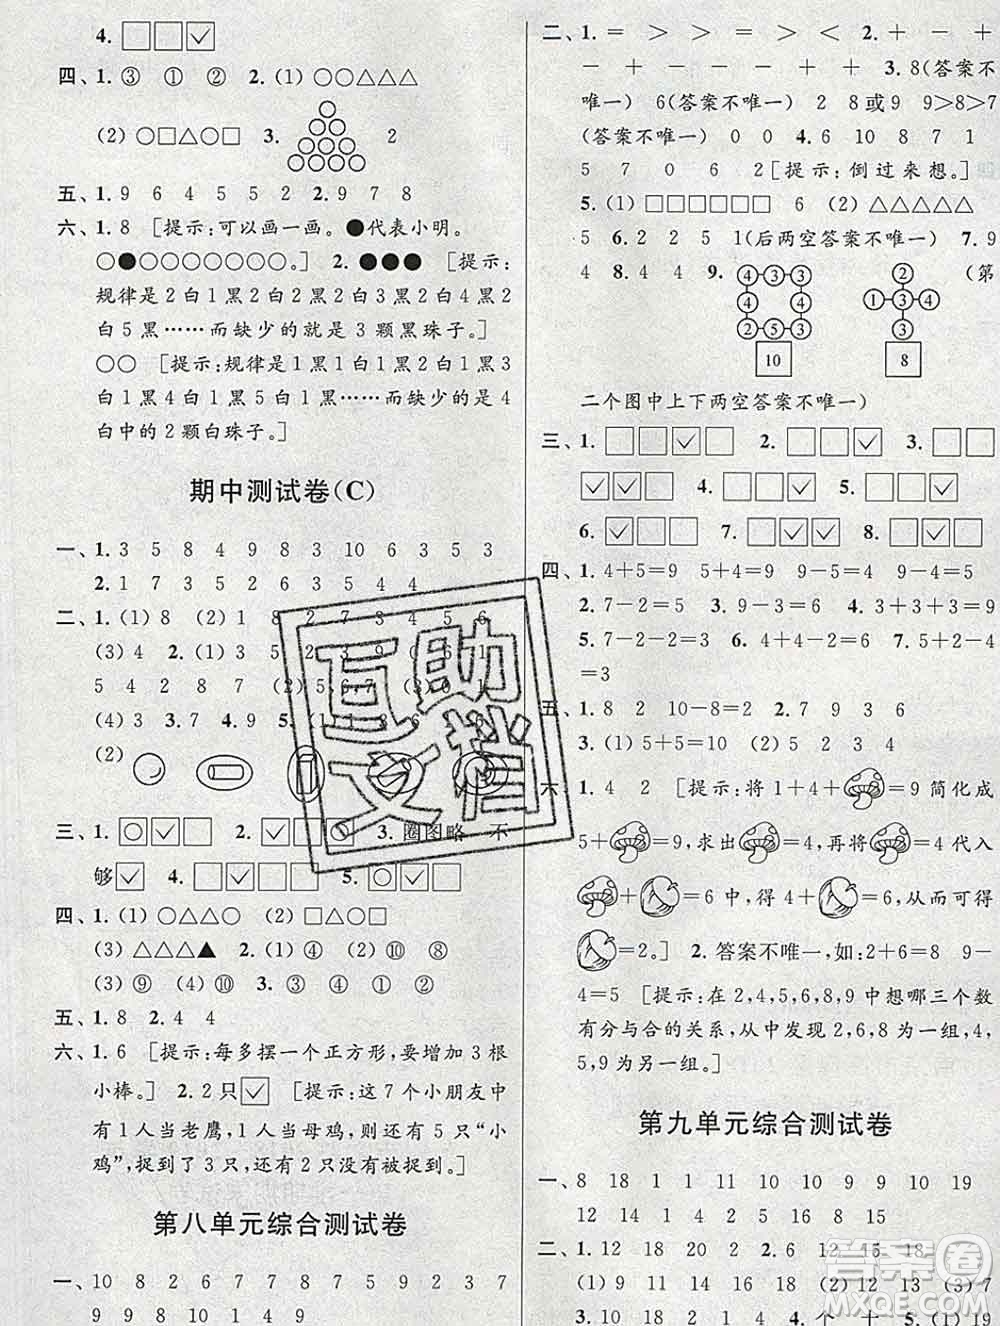 4. □□☑
四、1. ③ ① ② 2. (1) ○○△△△
(2) ○□△□□ 3. 2
五、1. 9 6 4 5 5 2. 9 7 8
六、1. 8 [提示:可以画一画。●代表小明。
○●○○○○○○○○。] 2. ●●● [提示:
规律是2白1黑2白2黑2白3黑2白4黑2
白5黑……而缺少的就是3颗黑珠子。]
○○ [提示:规律是1黑1白1黑2白1黑3
白1黑4白1黑5白1黑……而缺少的是4
白中的2颗白珠子。]
期中测试卷(C)
一、1. 3 5 8 4 9 8 3 10 6 3 5 3
2. 1 7 3 5 2 6 3 5 4 4
二、1. (1) 8 (2) 1 8 2 7 3 4 5 6
(3) 4 2. (1) 5
5 4 2 8 7 (2) 5,6,7
(4) 3 3. 7 4. 9 5.
(2)
三、1. ○☑□ 2. 3. 圈图略 不
够☑ 4. □☑□□□ 5. ○☑□
四、1. (1) ○△△△○ (2) □△○□
(3) △△△▲ 2. (1) ④ (2) ⑩ ⑧
(3) ⑨ (4) ⑩ 3. ① ③ ④ ②
五、1. 8 2. 4 4
六、1. 6 [提示:每多摆一个正方形,要增加3根
小棒。] 2. 2只☑ [提示:这7个小朋友中
有1人当老鹰,有1人当母鸡,则还有5只“小
鸡”,捉到了3只,还有2只没有被捉到。]
第八单元综合测试卷
一、10 8 2 6 7 7 8 5 9 2 3 7
9 9 8 10 1 4 9 9
二、1. = > > = > < 2. + − +
− + − − − + + 3. 8(答案不
唯一) 6(答案不唯一) 2 8或9 9>8>7
(答案不唯一) 0 0 4. 6 10 8 7 1
5 7 0 6 2 [提示:倒过来想。]
5. (1) □□□□□□ 6 (2) △△△△△
5 6. 2 2 5 1(后两空答案不唯一) 7. 9
4 8. 4 4 9. ④③③ ④ ④ ②⑤③ 10 ② ①③④ ③ 8 (第
二个图中上下两空答案不唯一)
三、1. □□☑□ 2. □□☑ 3. □□
☑☑□□ 4. □□☑ 5. □☑□
6. □☑□□ 7. □☑☑ 8. □☑□
四、1. 4+5=9 5+4=9 9−5=4 9−4=5
2. 7−2=5 3. 9−3=6 4. 3+3+3=9
5. 7−2−2=3 6. 4+4−2=6 7. 5+2−4
=3
五、1. 8 2 10−8=2 2. 7 9 3 6
3. (1) 5+5=10 (2) 5 2 3 4
六、1. 4 2 [提示:将1+4+ =9简化成
5+ =9,求出 =4,再将 =4代入
+ =6中,得4+ =6,从而可得
=2。] 2. 答案不唯一,如:2+6=8 9−
4=5 [提示:在2,4,5,6,8,9中想哪三个数
有分与合的关系,从中发现2,6,8为一组,4,
5,9为另一组。]
第九单元综合测试卷
一、8 18 1 1 11 9 10 10 19
12 14 1 2 16 8 15
二、1. 12 18 20 2 2. 6 12 15 18
(1) 9 12 (2) 12 13 (3) 9 7
3. 10 18 12 16 4. 个 十 5. (1) 19
互助文档
答案圈
MXQE.COM